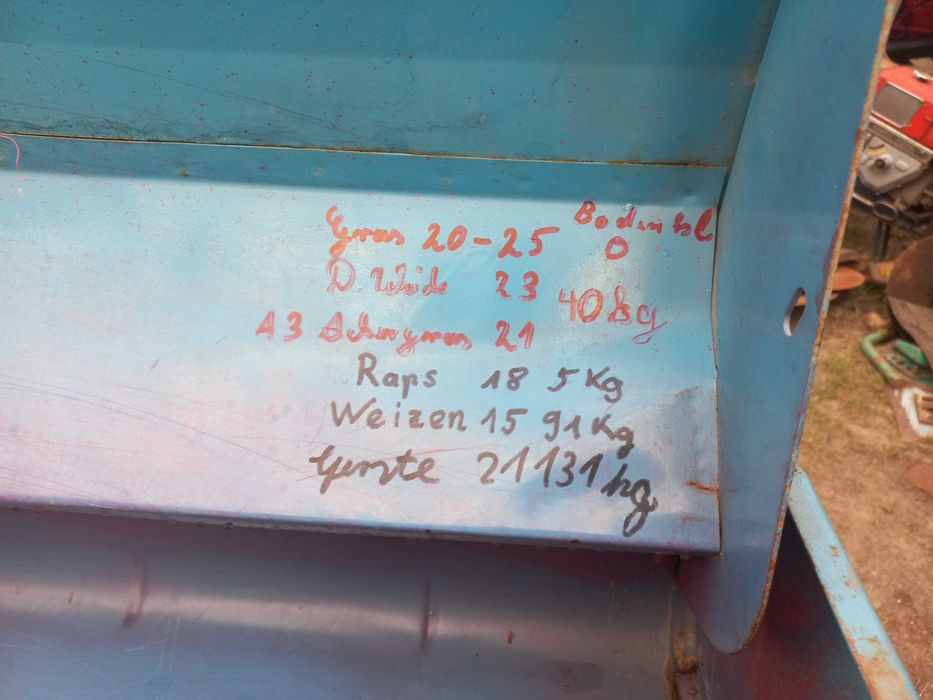 Gras 20-25 Bodenkl
0
D. Weide 23 40kg
A3 Ackergras 21
Raps 18 5Kg
Weizen 15 91Kg
Gerste 21 131kg